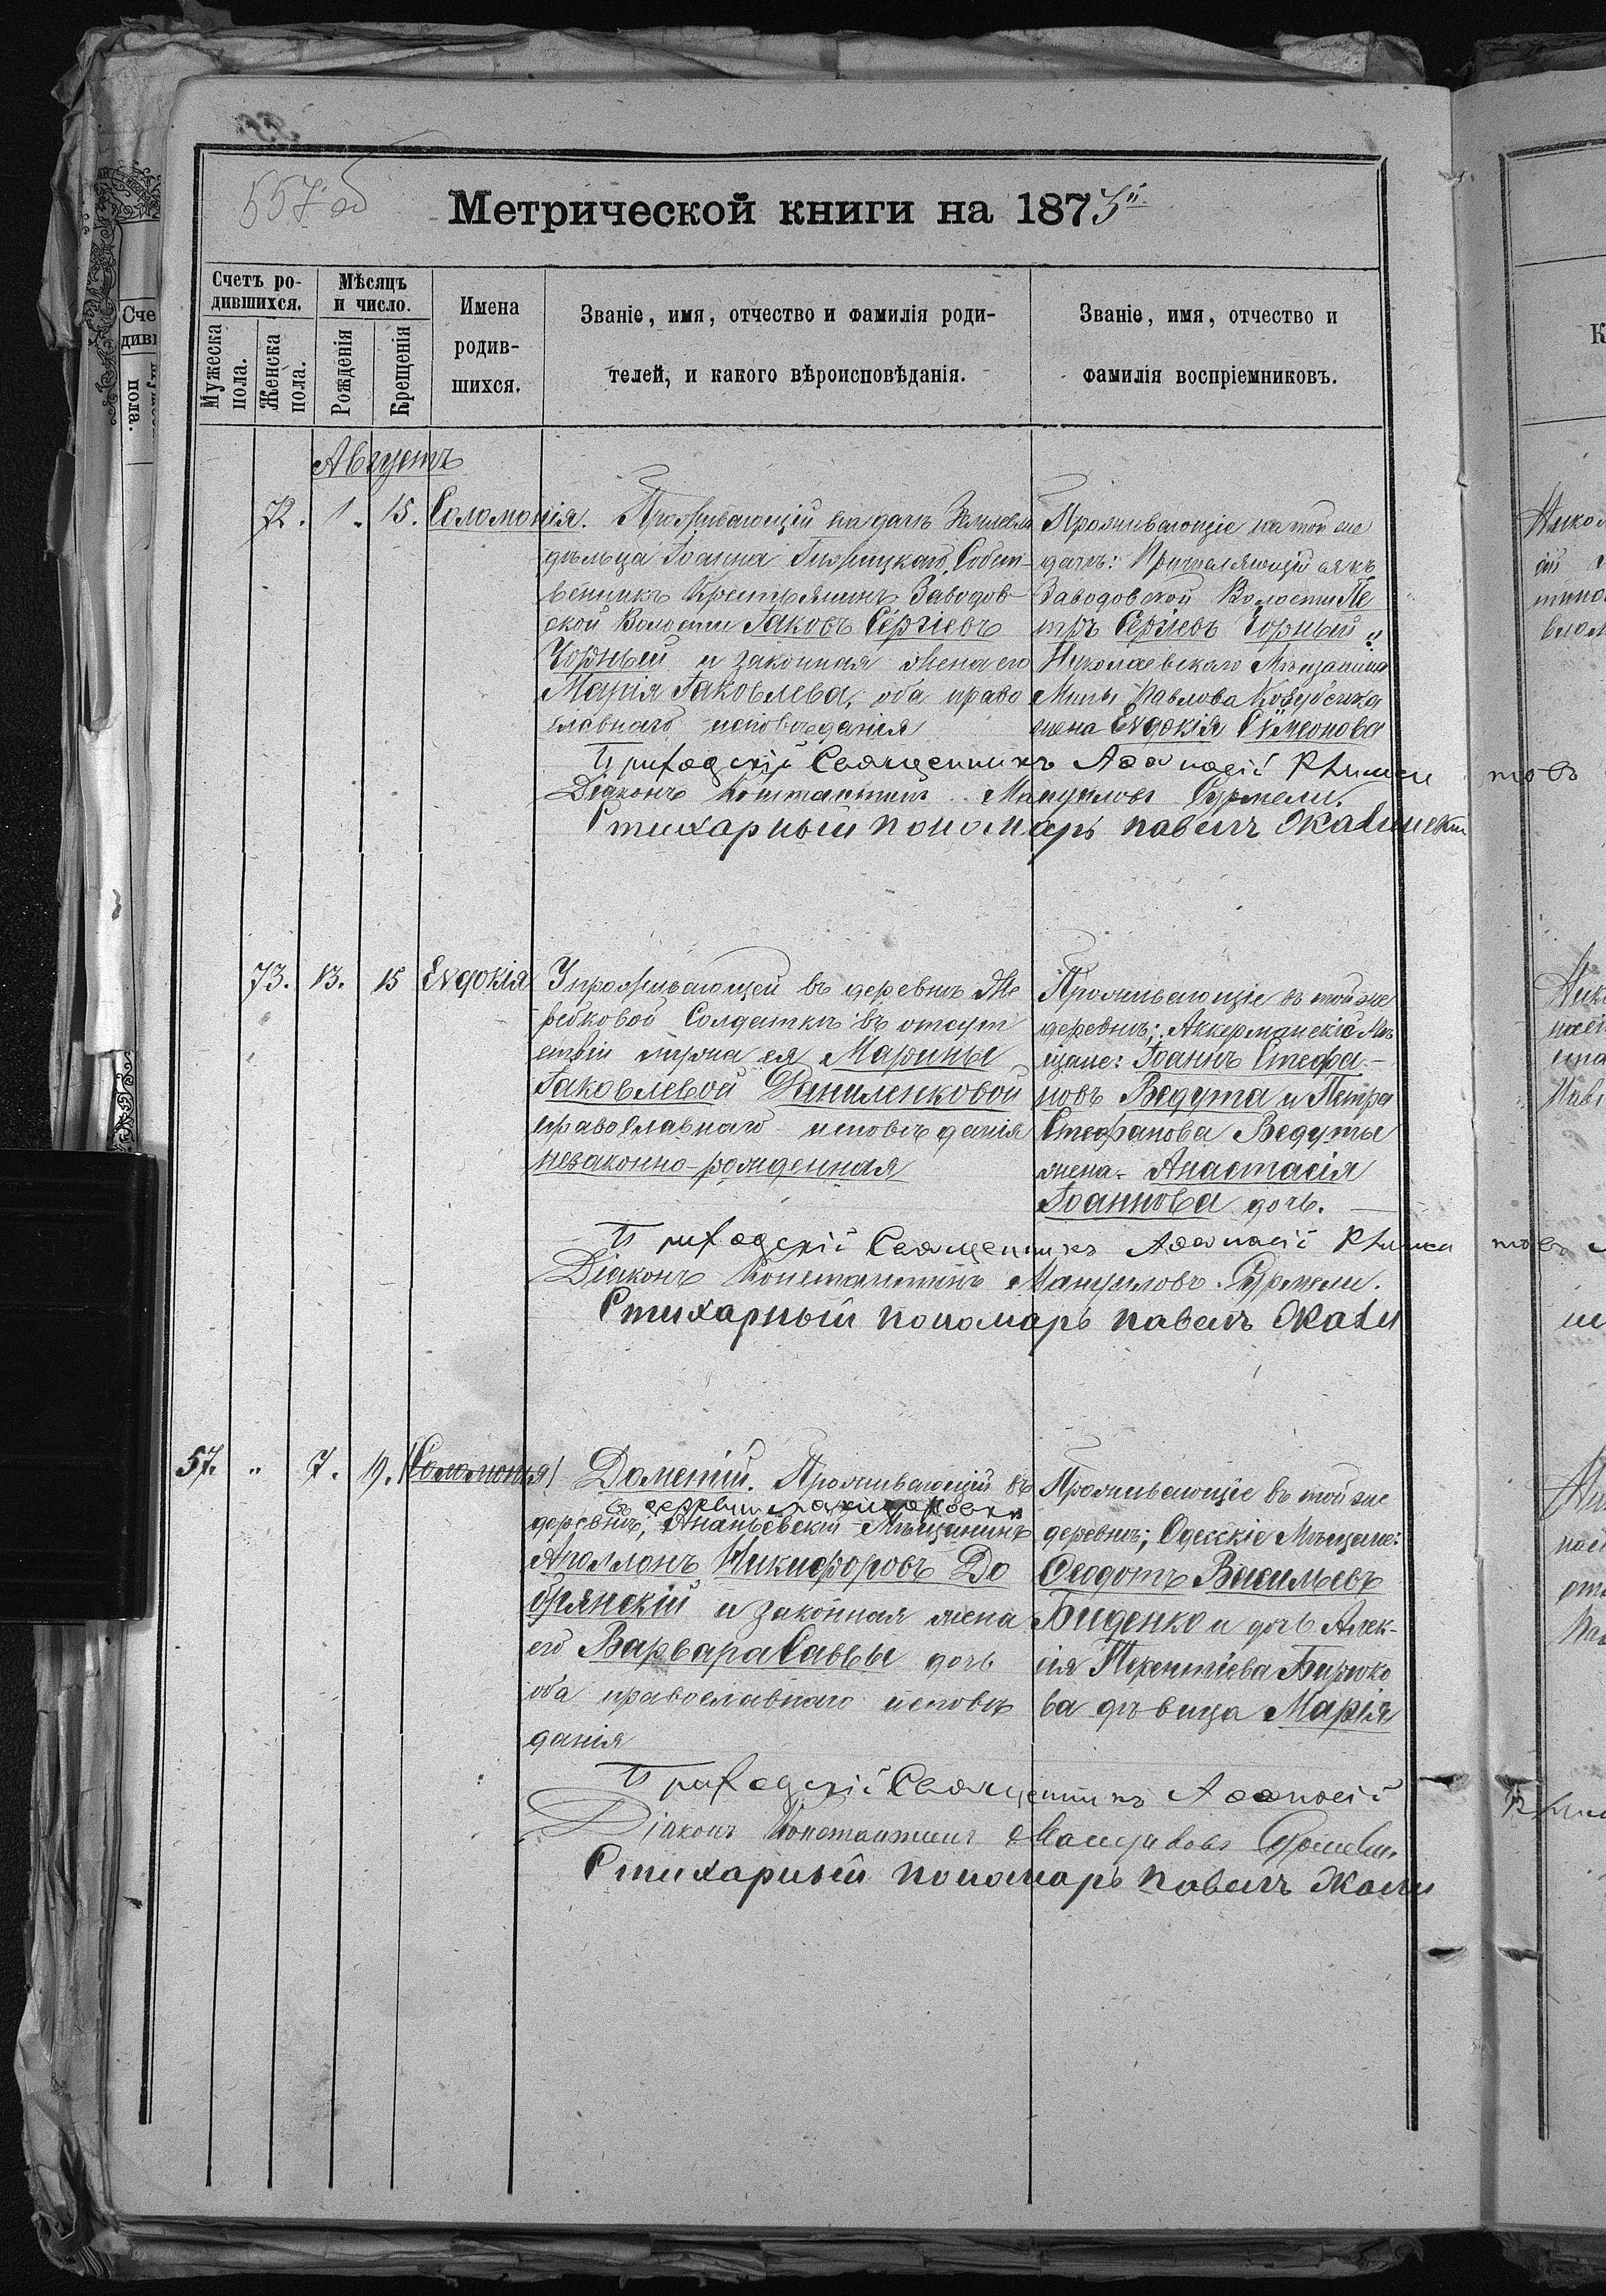 557 об
Метрической книги на 1875й
Счетъ ро-
дившихся.
Мѣсяцъ
и число.
Имена
родив-
шихся.
Званіе, имя, отчество и фамилія роди-
телей, и какого вѣроисповѣданія.
Званіе, имя, отчество и
фамилія воспріемниковъ.
Мужеска
пола.
Женска
пола.
Рожденія
Крещенія
Августъ
72. 1. 15. Соломонія.
Проживающій на дачѣ Землевла
дѣльца Іоанна Собст-
венникъ Крестьянинъ Заводов-
ской Волости Іаковъ Сергіевъ
Чорный и законная жена его
Марія Іаковлева, оба право
славнаго исповѣданія
Проживающіе на той же
дачѣ: Причисляющійся къ
Заводовской Волости Пе
тръ Сергіевъ Чорный и
Николаевскаго Мѣщанина
Павлова
жена Евдокія Сѵмеонова
Приходскій Священникъ Аѳанасій
Діаконъ Константинъ Мануиловъ
Стихарный пономарь Павелъ
73. 13. 15 Евдокія
У проживающей въ деревнѣ Же
ребковой Солдатки въ отсут
ствіи мужа ея Марины
Іаковлевой Даниленковой
православнаго исповѣданія
незаконно-рожденная
Проживающіе въ той же
деревнѣ; Аккерманскіе Мѣ
щане: Іоаннъ Стефа-
новъ Ведута и Петра
Стефанова Ведуты
жена - Анастасія
Іоаннова дочь.
Приходскій Священникъ Аѳанасій
Діаконъ Константинъ Мануиловъ
Стихарный пономарь Павелъ
57. " 7. 19. (Соломонія)
Дометій. Проживающій въ
деревнѣ, Ананьевскій Мѣщанинъ
Аполлонъ Никифоровъ До
брянскій и законная жена
его Варвара Саввы дочь
оба православнаго исповѣ
данія
Проживающіе въ той же
деревнѣ; Одесскіе Мѣщане:
Ѳеодотъ Васильевъ
Биденко и дочь Алек-
сія Терентіева Бирюко
ва дѣвица Марія
Приходскій Священникъ Аѳанасій
Діаконъ Константинъ Мануиловъ
Стихарный пономарь Павелъ